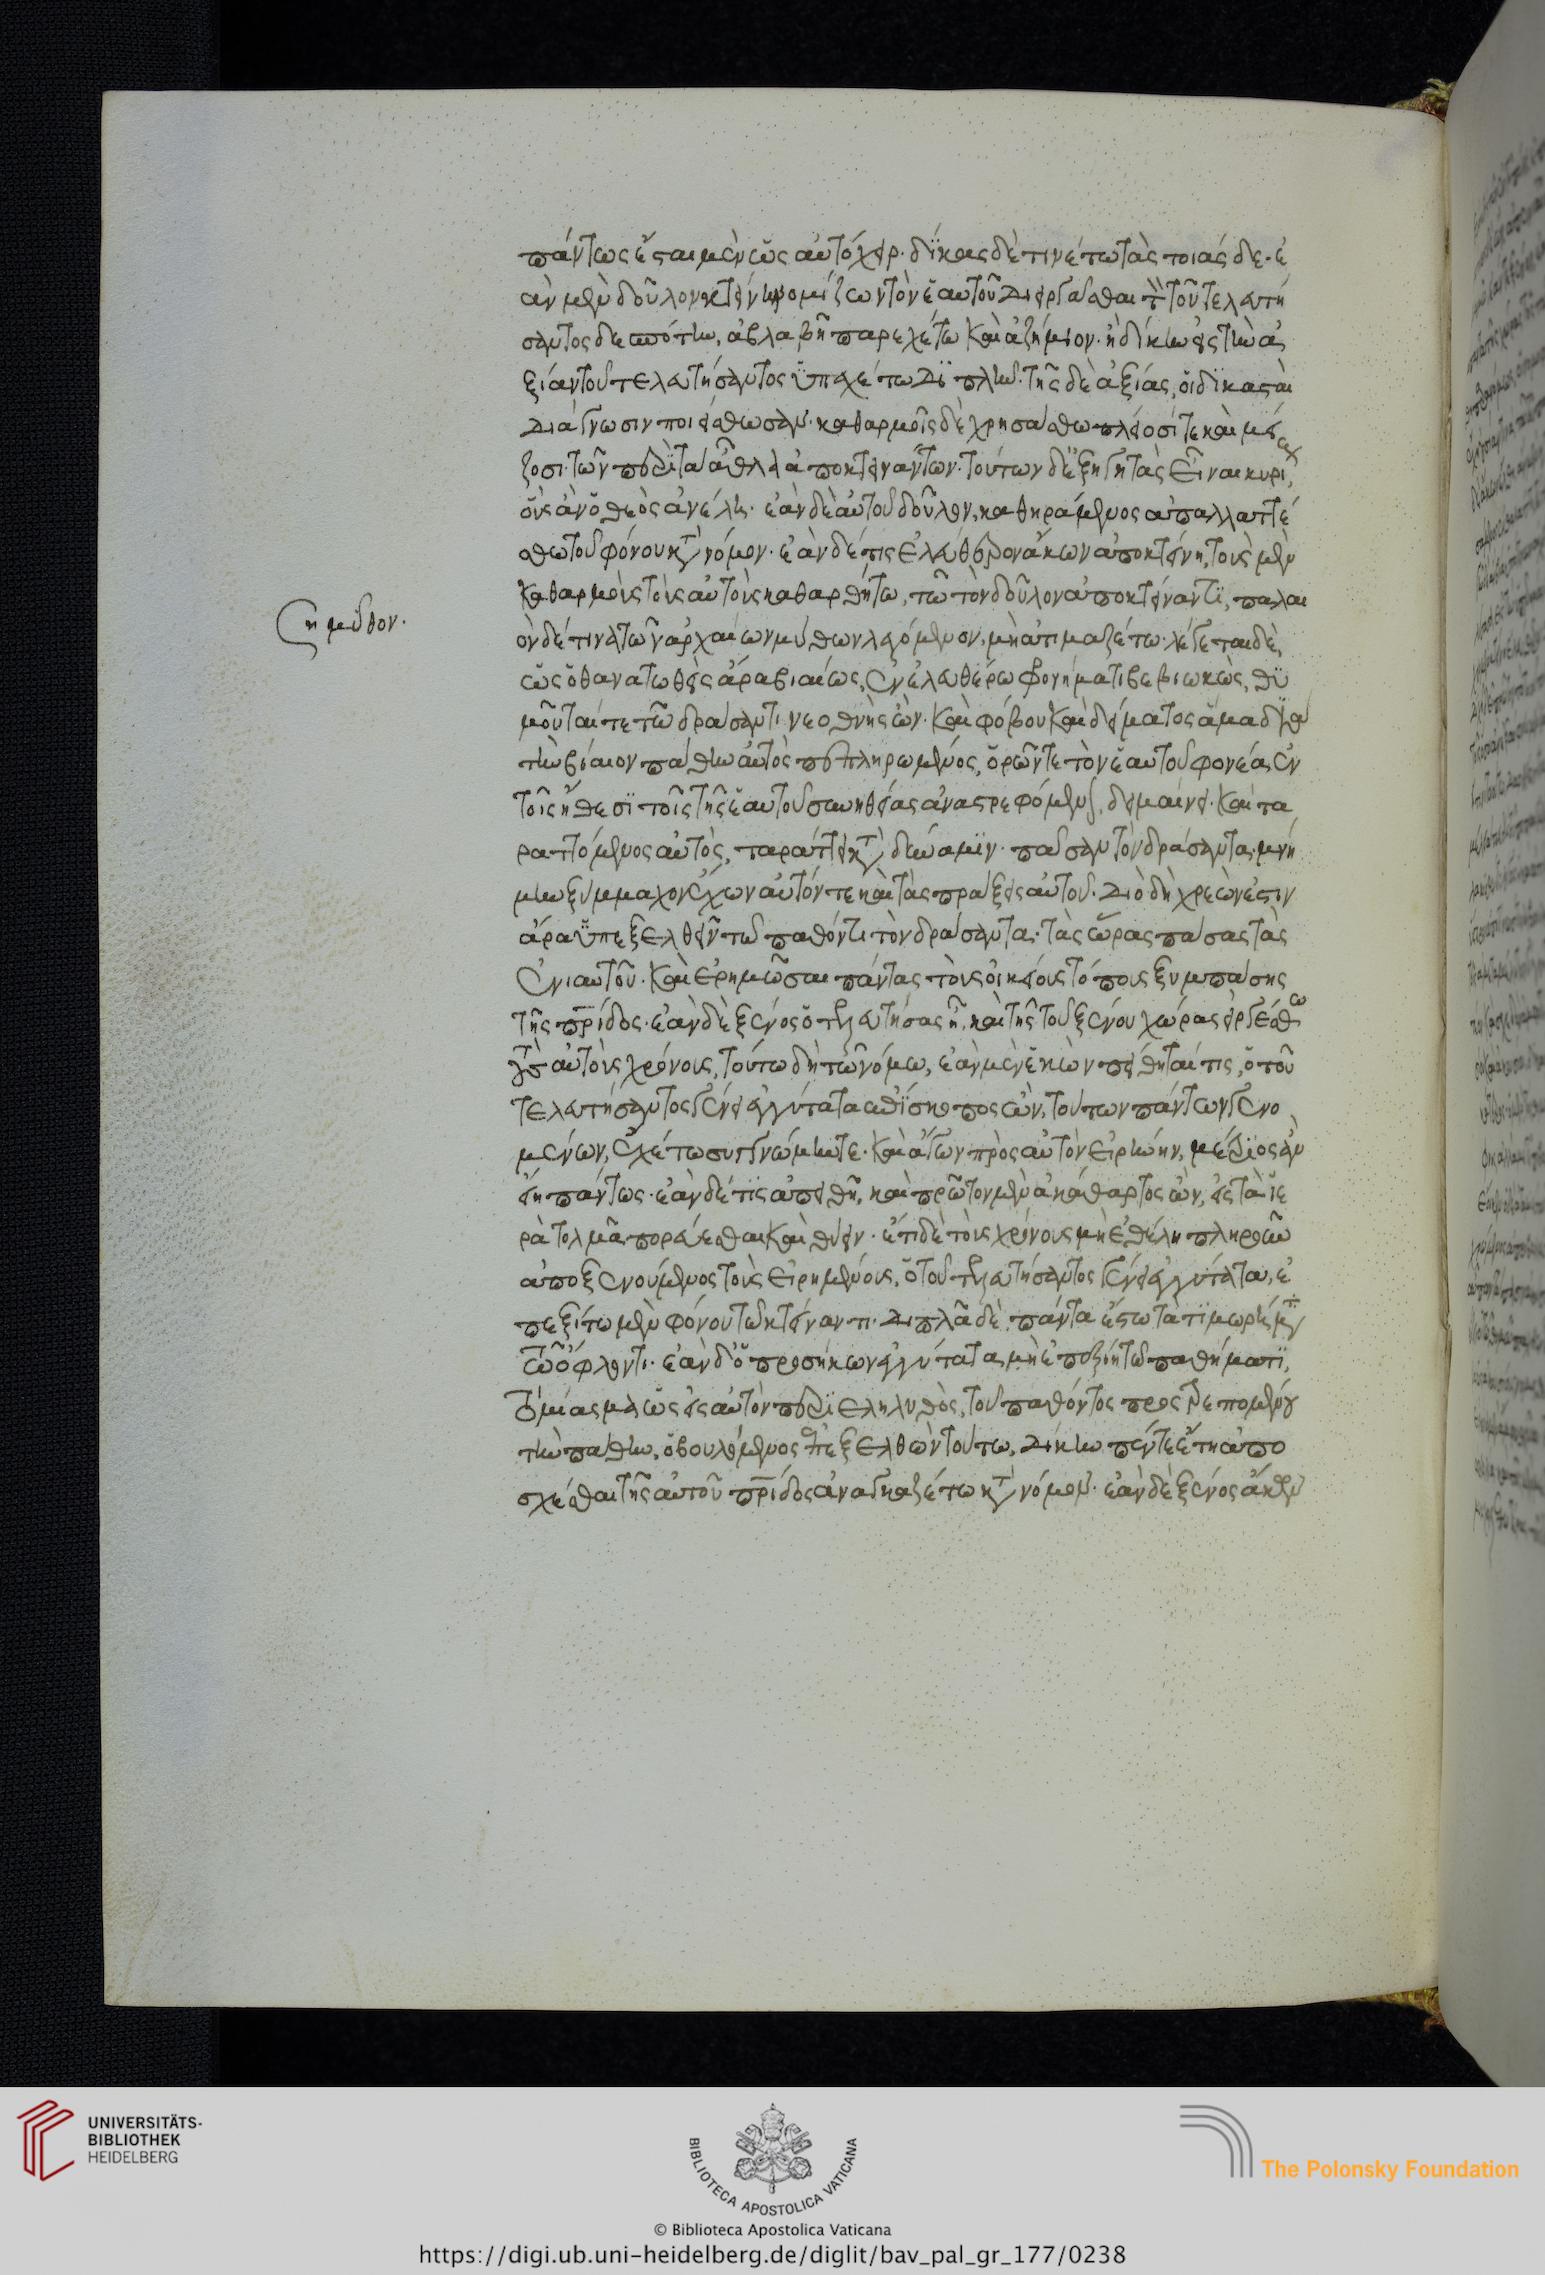 πάντως ἔσται μὲν ὡς αὐτόχειρ· δίκας δὲ τινέτω τὰς τοιάσδε· ἐ
ὰν μὲν δοῦλον κτείνῃ νομίζων τὸν ἑαυτοῦ διειργάσθαι τὸν τοῦ τελευτή
σαντος δεσπότην, ἀβλαβῆ παρεχέτω καὶ ἀζήμιον· ἢ δίκην εἰς τὴν ἀ
ξίαν τοῦ τελευτήσαντος ὑπεχέτω διπλῆν· τῆς δὲ ἀξίας, οἱ δικασταὶ
διάγνωσιν ποιείσθωσαν· καθαρμοῖς δὲ χρησάσθω πλείοσί τε καὶ μεί
ζοσι· τῶν περὶ τὰ ἆθλα ἀποκτεινάντων· τούτων δ' ἐξηγητὰς εἶναι κυρίους,
οὓς ἂν ὁ θεὸς ἀνέλῃ· ἐὰν δὲ αὐτοῦ δοῦλον, καθηράμενος ἀπαλλαττέ
σθω τοῦ φόνου κατὰ νόμον· ἐὰν δέ τις ἐλεύθερον ἄκων ἀποκτείνῃ, τοὺς μὲν
καθαρμοὺς τοὺς αὐτοὺς καθαρθήτω, τῷ τὸν δοῦλον ἀποκτείναντι, παλαι
ὸν δέ τινα τῶν ἀρχαίων μύθων λεγόμενον, μὴ ἀτιμαζέτω· λέγεται δὲ,
ση μῦθον·
ὡς ὁ θανατωθεὶς ἄρα βιαίως, ἐν ἐλευθέρω φρονήματι βεβιωκὼς, θυ
μοῦταί τε τῷ δράσαντι νεοθνὴς ὤν· καὶ φόβου καὶ δείματος ἅμα διὰ
τὴν βίαιον πάθην αὐτὸς πεπληρωμένος, ὁρῶν τε τὸν ἑαυτοῦ φονέα, ἐν
τοῖς ἤθεσι τοῖς τῆς ἑαυτοῦ συνηθείας ἀναστρεφόμενον, δειμαίνει· καὶ τα
ραττόμενος αὐτὸς, ταράττει κατὰ δύναμιν· πᾶσαν τὸν δράσαντα· μνή
μην ξύμμαχον ἔχων αὐτόν τε καὶ τὰς πράξεις αὐτοῦ· διὸ δὴ χρεὼν ἐστιν
ἄρα ὑπεξελθεῖν τῷ παθόντι τὸν δράσαντα· τὰς ὥρας πάσας τὰς
ἐνιαυτοῦ· καὶ ἐρημῶσαι πάντας τοὺς οἰκείους τόπους ξυμπάσης
τῆς πρίδος· ἐὰν δὲ ξένος ὁ τελευτήσας ᾖ, καὶ τῆς τοῦ ξένου χώρας εἰργέσθω
τοὺς αὐτοὺς χρόνους, τούτω δὴ τῷ νόμω, ἐὰν μὲν ἑκὼν πείθηταί τις, ὁ τοῦ
τελευτήσαντος γένει ἐγγύτατα ἐπίσκοπος ὢν, τούτων πάντων γενο
μένων, ἐχέτω συγγνώμην τε· καὶ ἄγων πρὸς αὐτὸν εἰρήνην, μέτριος ἂν
εἴη πάντως· ἐὰν δέ τις ἀπειθῇ, καὶ πρῶτον μὲν ἀκάθαρτος ὢν, εἰς τὰ ἱε
ρὰ τολμᾶ πορεύεσθαι καὶ θύειν· ἔτι δὲ τοὺς χρόνους μὴ ἐθέλη πληροῦν
ἀποξενούμενος τοὺς εἰρημένους, ὁ τοῦ τελευτήσαντος γένει ἐγγύτατα, ἐ
πεξίτω μὲν φόνου τῷ κτείναντι· διπλᾶ δὲ πάντα ἔστω τὰ τιμωρήματα
τῷ ὀφλόντι· ἐὰν δ' ὁ προσήκων ἐγγύτατα, μὴ ἐπεξίῃ τῷ παθήματι,
τὸ μίασμα ὡς εἰς αὐτὸν περιεληλυθὸς, τοῦ παθόντος προστρεπομένου
τὴν πάθην, ὁ βουλόμενος ἐπεξελθὼν τούτω, δίκην πέντε ἔτη ἀπο
σχέσθαι τῆς αὐτοῦ πρίδος ἀναγκαζέτω κατὰ νόμον· ἐὰν δὲ ξένος ἄκων
UNIVERSITÄTS-
BIBLIOTHEK
HEIDELBERG
BIBLIOTECA APOSTOLICA VATICANA
The Polonsky Foundation
© Biblioteca Apostolica Vaticana
https://digi.ub.uni-heidelberg.de/diglit/bav_pal_gr_177/0238